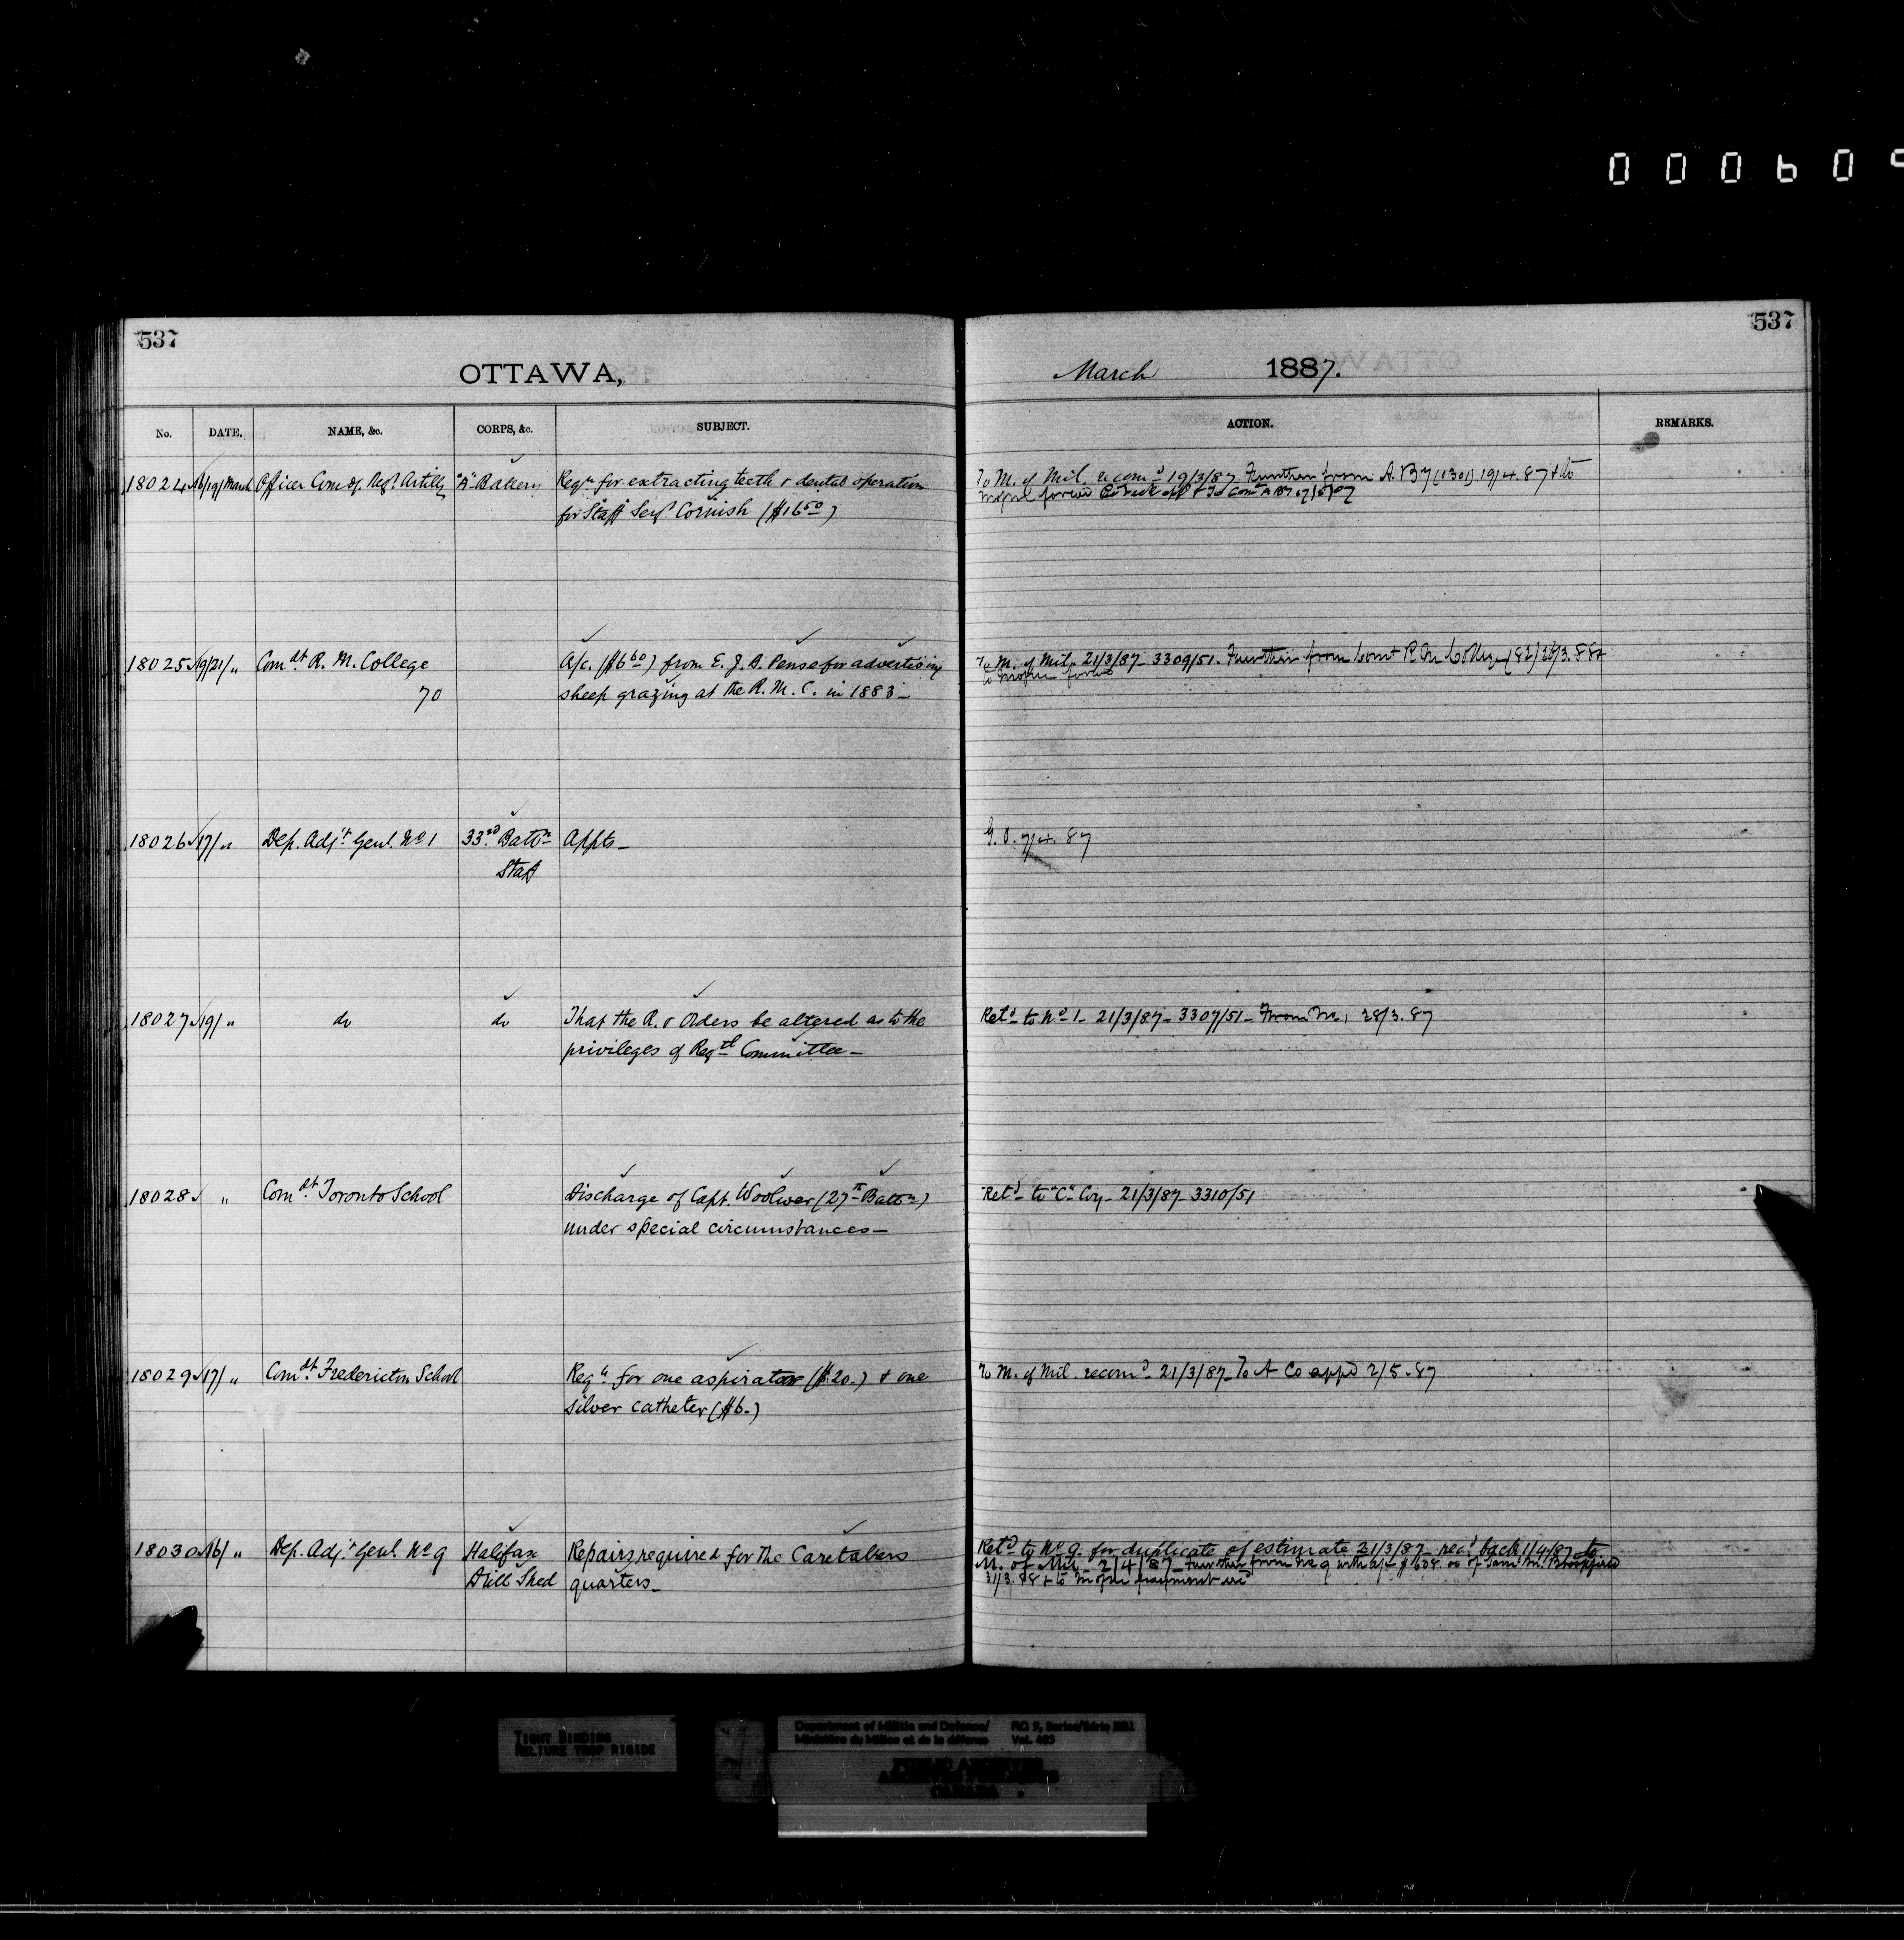 000609
537
537
OTTAWA,
March 1887.
No. DATE. NAME, &c. CORPS, &c. SUBJECT. ACTION. REMARKS.
18024 16/19/March Officer Comdg. Regt. Artilly "A" Battery Reqn for extracting teeth & dental operation
for Staff Sergt Cornish ($16 50)
To M. of Mil. recomd 19/3/87 Further from A. By (1301) 19/4.87 & to
18025 19/21/ " Comdt R. M. College A/c. ($6 60) from E. J. B. Pense for advertising
70 sheep grazing at the R. M. C. in 1883 -
To M. of Mil. 21/3/87 - 3309/51 - Further from Comt R M College (82) 26/3.88 &
18026 17/ " Dep. Adjt. Genl. No 1 33rd Battn Appts -
Staff
G. O. 7/4. 87
18027 19/ " do do That the R. & Orders be altered as to the
privileges of Regtl Committee -
Retd to No 1 - 21/3/87 - 3307/51 - From No 1 28/3.87
18028 " Comdt. Toronto School Discharge of Capt. Woolver (27th Battn)
under special circumstances -
Retd to "C" Coy - 21/3/87 - 3310/51
18029 17/ " Comdt. Fredericton School Reqn for one aspirator ($20.) & one
silver catheter ($6.)
To M. of Mil. recomd - 21/3/87 - To A Co appd 2/5.87
18030 16/ " Dep. Adjt. Genl. No 9 Halifax Repairs required for the Caretakers
Drill Shed quarters -
Retd to No 9. for duplicate of estimate 21/3/87 - recd back 1/4/87 to
M. of Mil - 2/4/87 - Further from No 9 with a/c
31/3.88 & to
TIGHT BINDING
RELIURE TROP RIGIDE
Department of Militia and Defence/ RG 9, Series/Série IIB1
Ministère du Milice et de la défense Vol. 485
PUBLIC ARCHIVES
ARCHIVES PUBLIQUES
CANADA